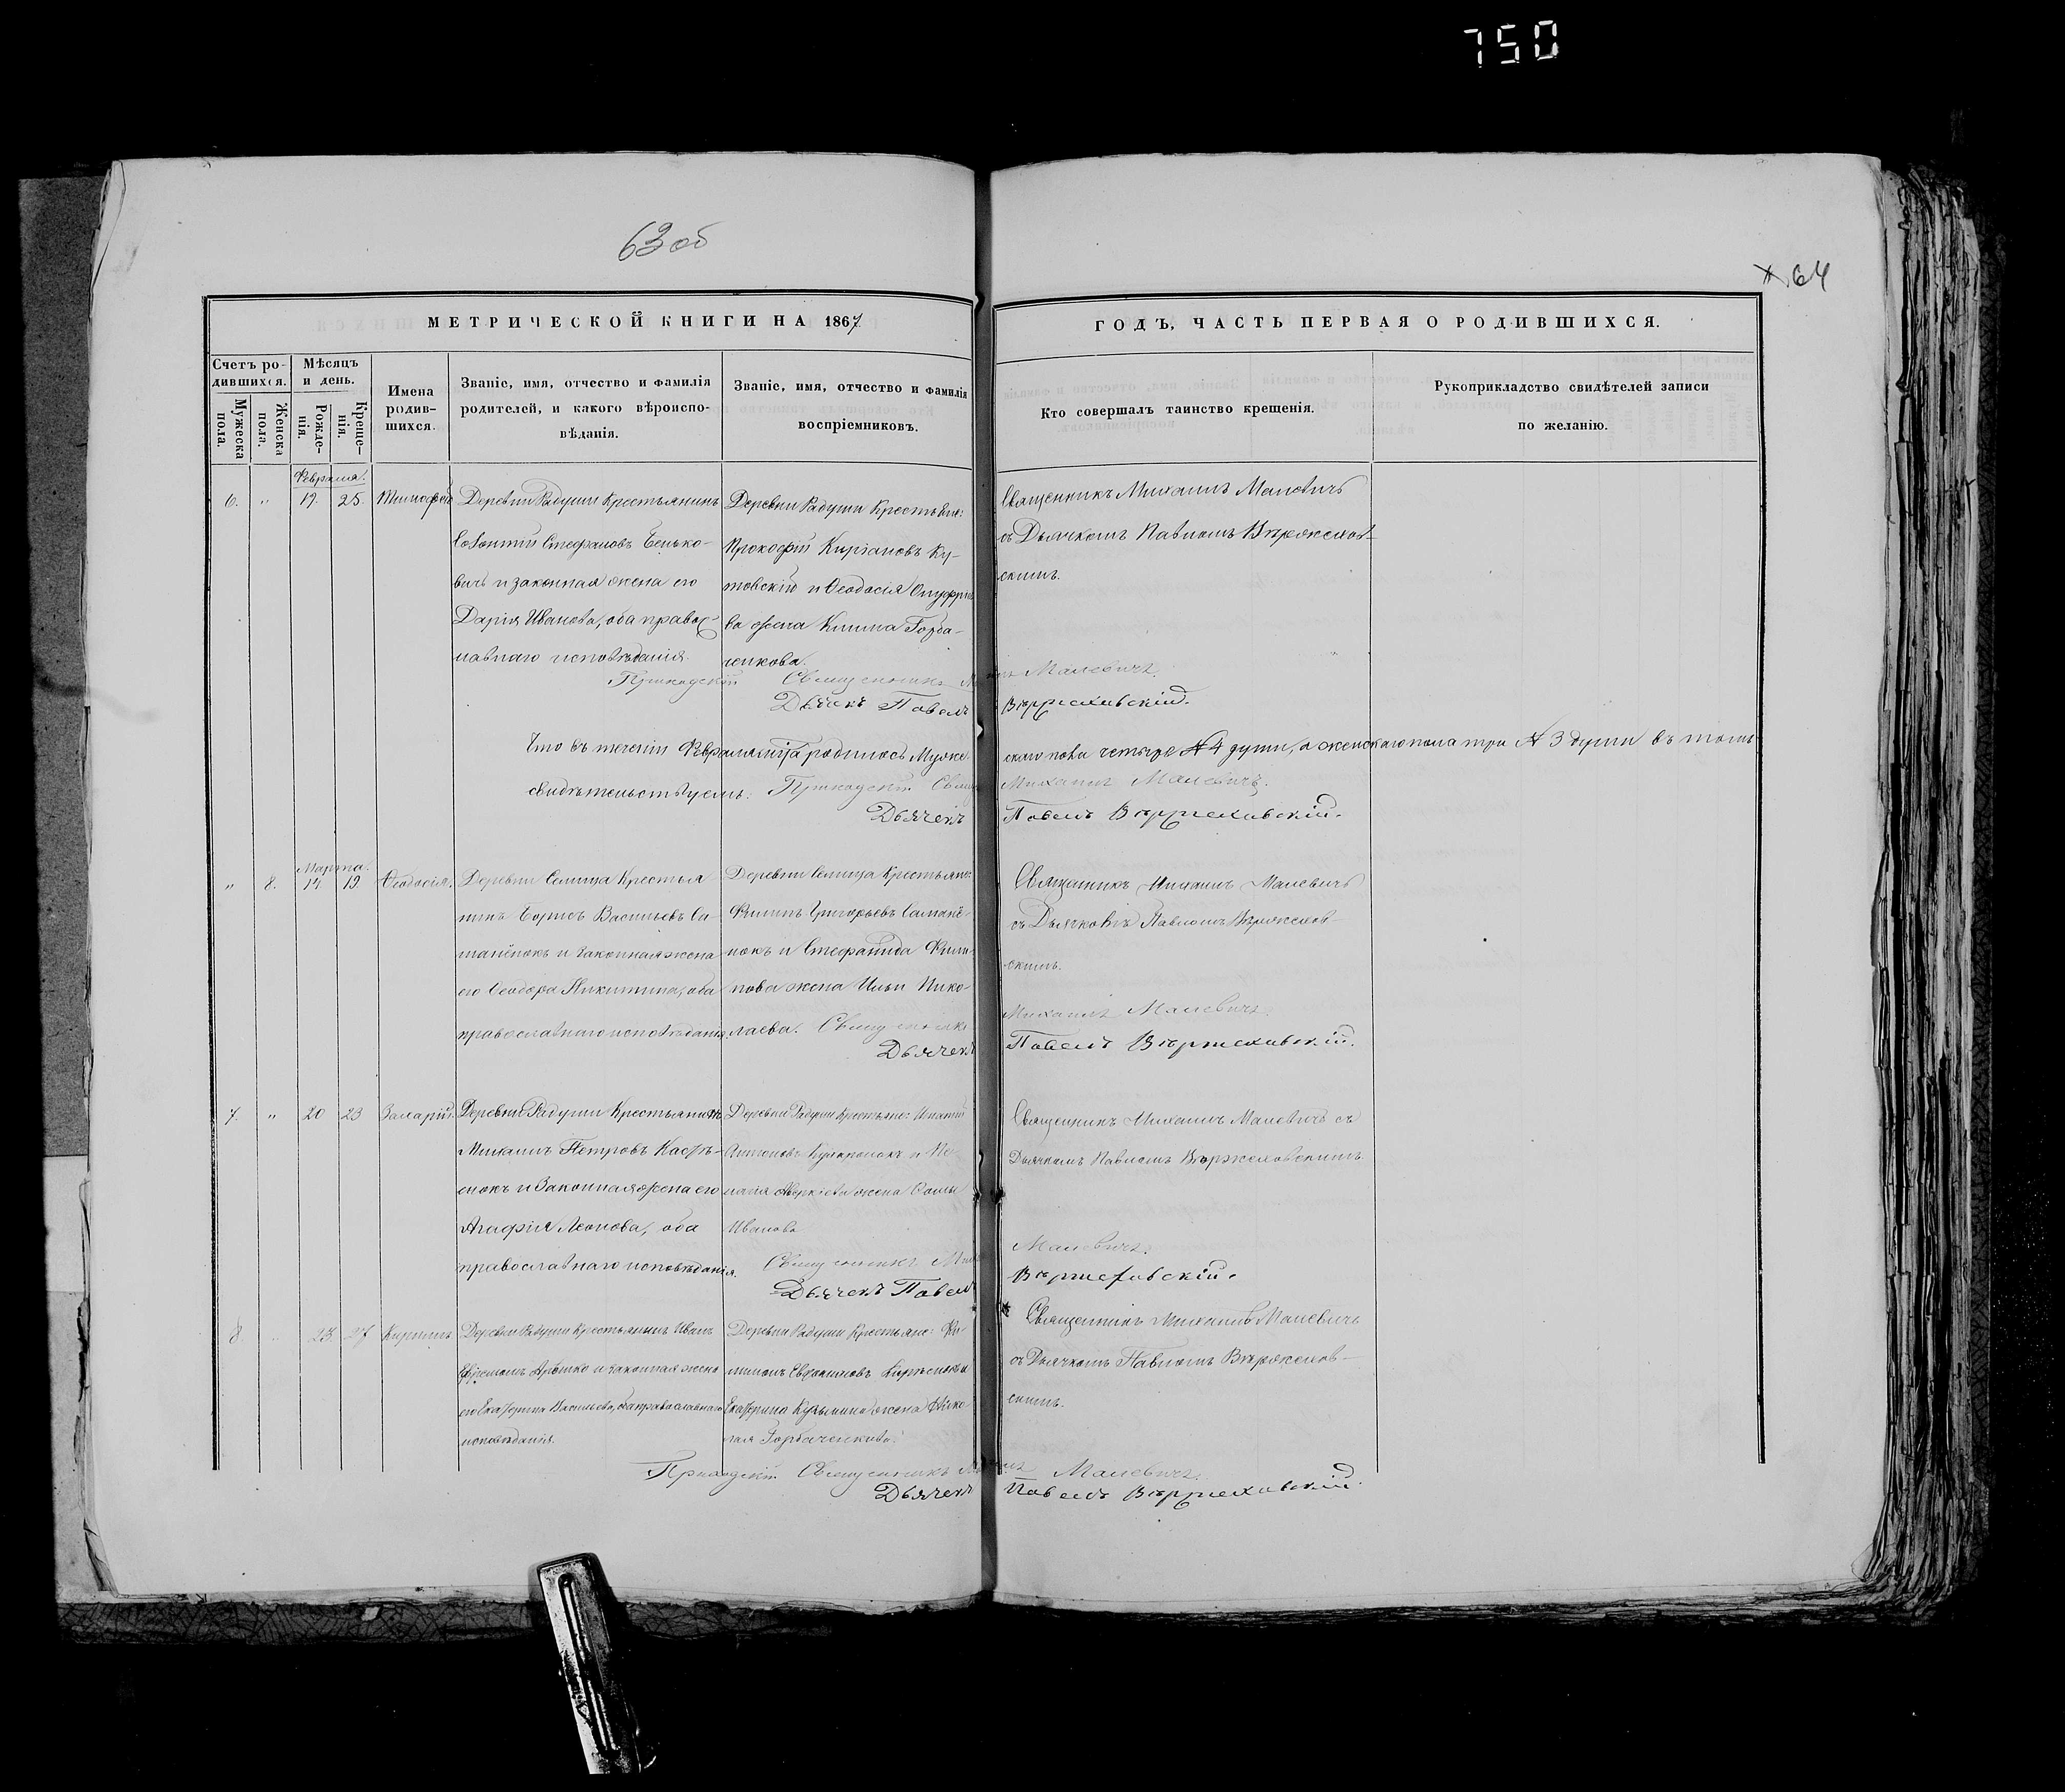 750
63 об
64
МЕТРИЧЕСКОЙ КНИГИ НА 1867
ГОДЪ, ЧАСТЬ ПЕРВАЯ О РОДИВШИХСЯ.
Счетъ ро-
дившихся.
Мужеска
пола.
Женска
пола.
Мѣсяцъ
и день.
Рожде-
нія.
Креще-
нія.
Имена
родив-
шихся.
Званіе, имя, отчество и фамилія
родителей, и какого вѣроиспо-
вѣданія.
Званіе, имя, отчество и фамилія
воспріемниковъ.
Кто совершалъ таинство крещенія.
Рукоприкладство свидѣтелей записи
по желанію.
Февраля.
6. " 19. 25. Тимофей
Деревни Радуши Крестьянинъ
Стефановъ Сенько-
вичъ и законная жена его
Дарія Иванова, оба правос-
лавнаго исповѣданія.
Деревни Радуши Крестьяне:
Прокофій Кирꙗновъ Ку-
товскій и Ѳеодосія
ва жена Клима Горба-
ченкова.
Священникъ Михаилъ Малевичъ
съ Дьячкомъ Павломъ Вержехов-
скимъ.
Приходскій Священникъ Малевичъ.
Дьячекъ Павелъ Вержеховскій.
Что въ теченіи Февраля м-ца родилось Муже-
скаго пола четыре № 4 души, а женскаго пола три № 3 души въ томъ
свидѣтельствуемъ: Приходскій Михаилъ Малевичъ.
Дьячекъ Павелъ Вержеховскій.
Марта.
" 8. 14 19. Ѳеодосія.
Деревни Селища Крестья
нинъ Борисъ Васильевъ Са-
манёнокъ и законная жена
его Ѳеодора Никитина, оба
православнаго исповѣданія.
Деревни Селища Крестьяне:
Филипъ Григорьевъ Саманё-
нокъ и Стефанида Фили-
пова жена Ильи Нико-
лаева.
Священникъ Михаилъ Малевичъ
съ Дьячкомъ Павломъ Вержехов-
скимъ.
Священникъ Михаилъ Малевичъ.
Дьячекъ Павелъ Вержеховскій.
7. " 20 23 Захарій.
Деревни Радуши Крестьянинъ
Михаилъ Петровъ
и Законная жена его
Агафія Леонова, оба
православнаго исповѣданія.
Деревни Радуши Крестьяне: Игнатій
Антоновъ и Пе-
лагія Аверкіева жена Ѳомы
Иванова
Священникъ Михаилъ Малевичъ съ
Дьячкомъ Павломъ Вержеховскимъ.
Священникъ Малевичъ.
Дьячекъ Павелъ Вержеховскій.
8 " 23 27 Кирилъ
Деревни Радуши Крестьянинъ Иванъ
и законная жена
его Екатерина Васильева, оба православнаго
исповѣданія.
Деревни Радуши Крестьяне: Фи-
Екатерина Кузьмина жена Нико-
лая Горбаченкова.
Священникъ Михаилъ Малевичъ
съ Дьячкомъ Павломъ Вержехов-
скимъ.
Приходскій Священникъ Малевичъ.
Дьячекъ Павелъ Вержеховскій.